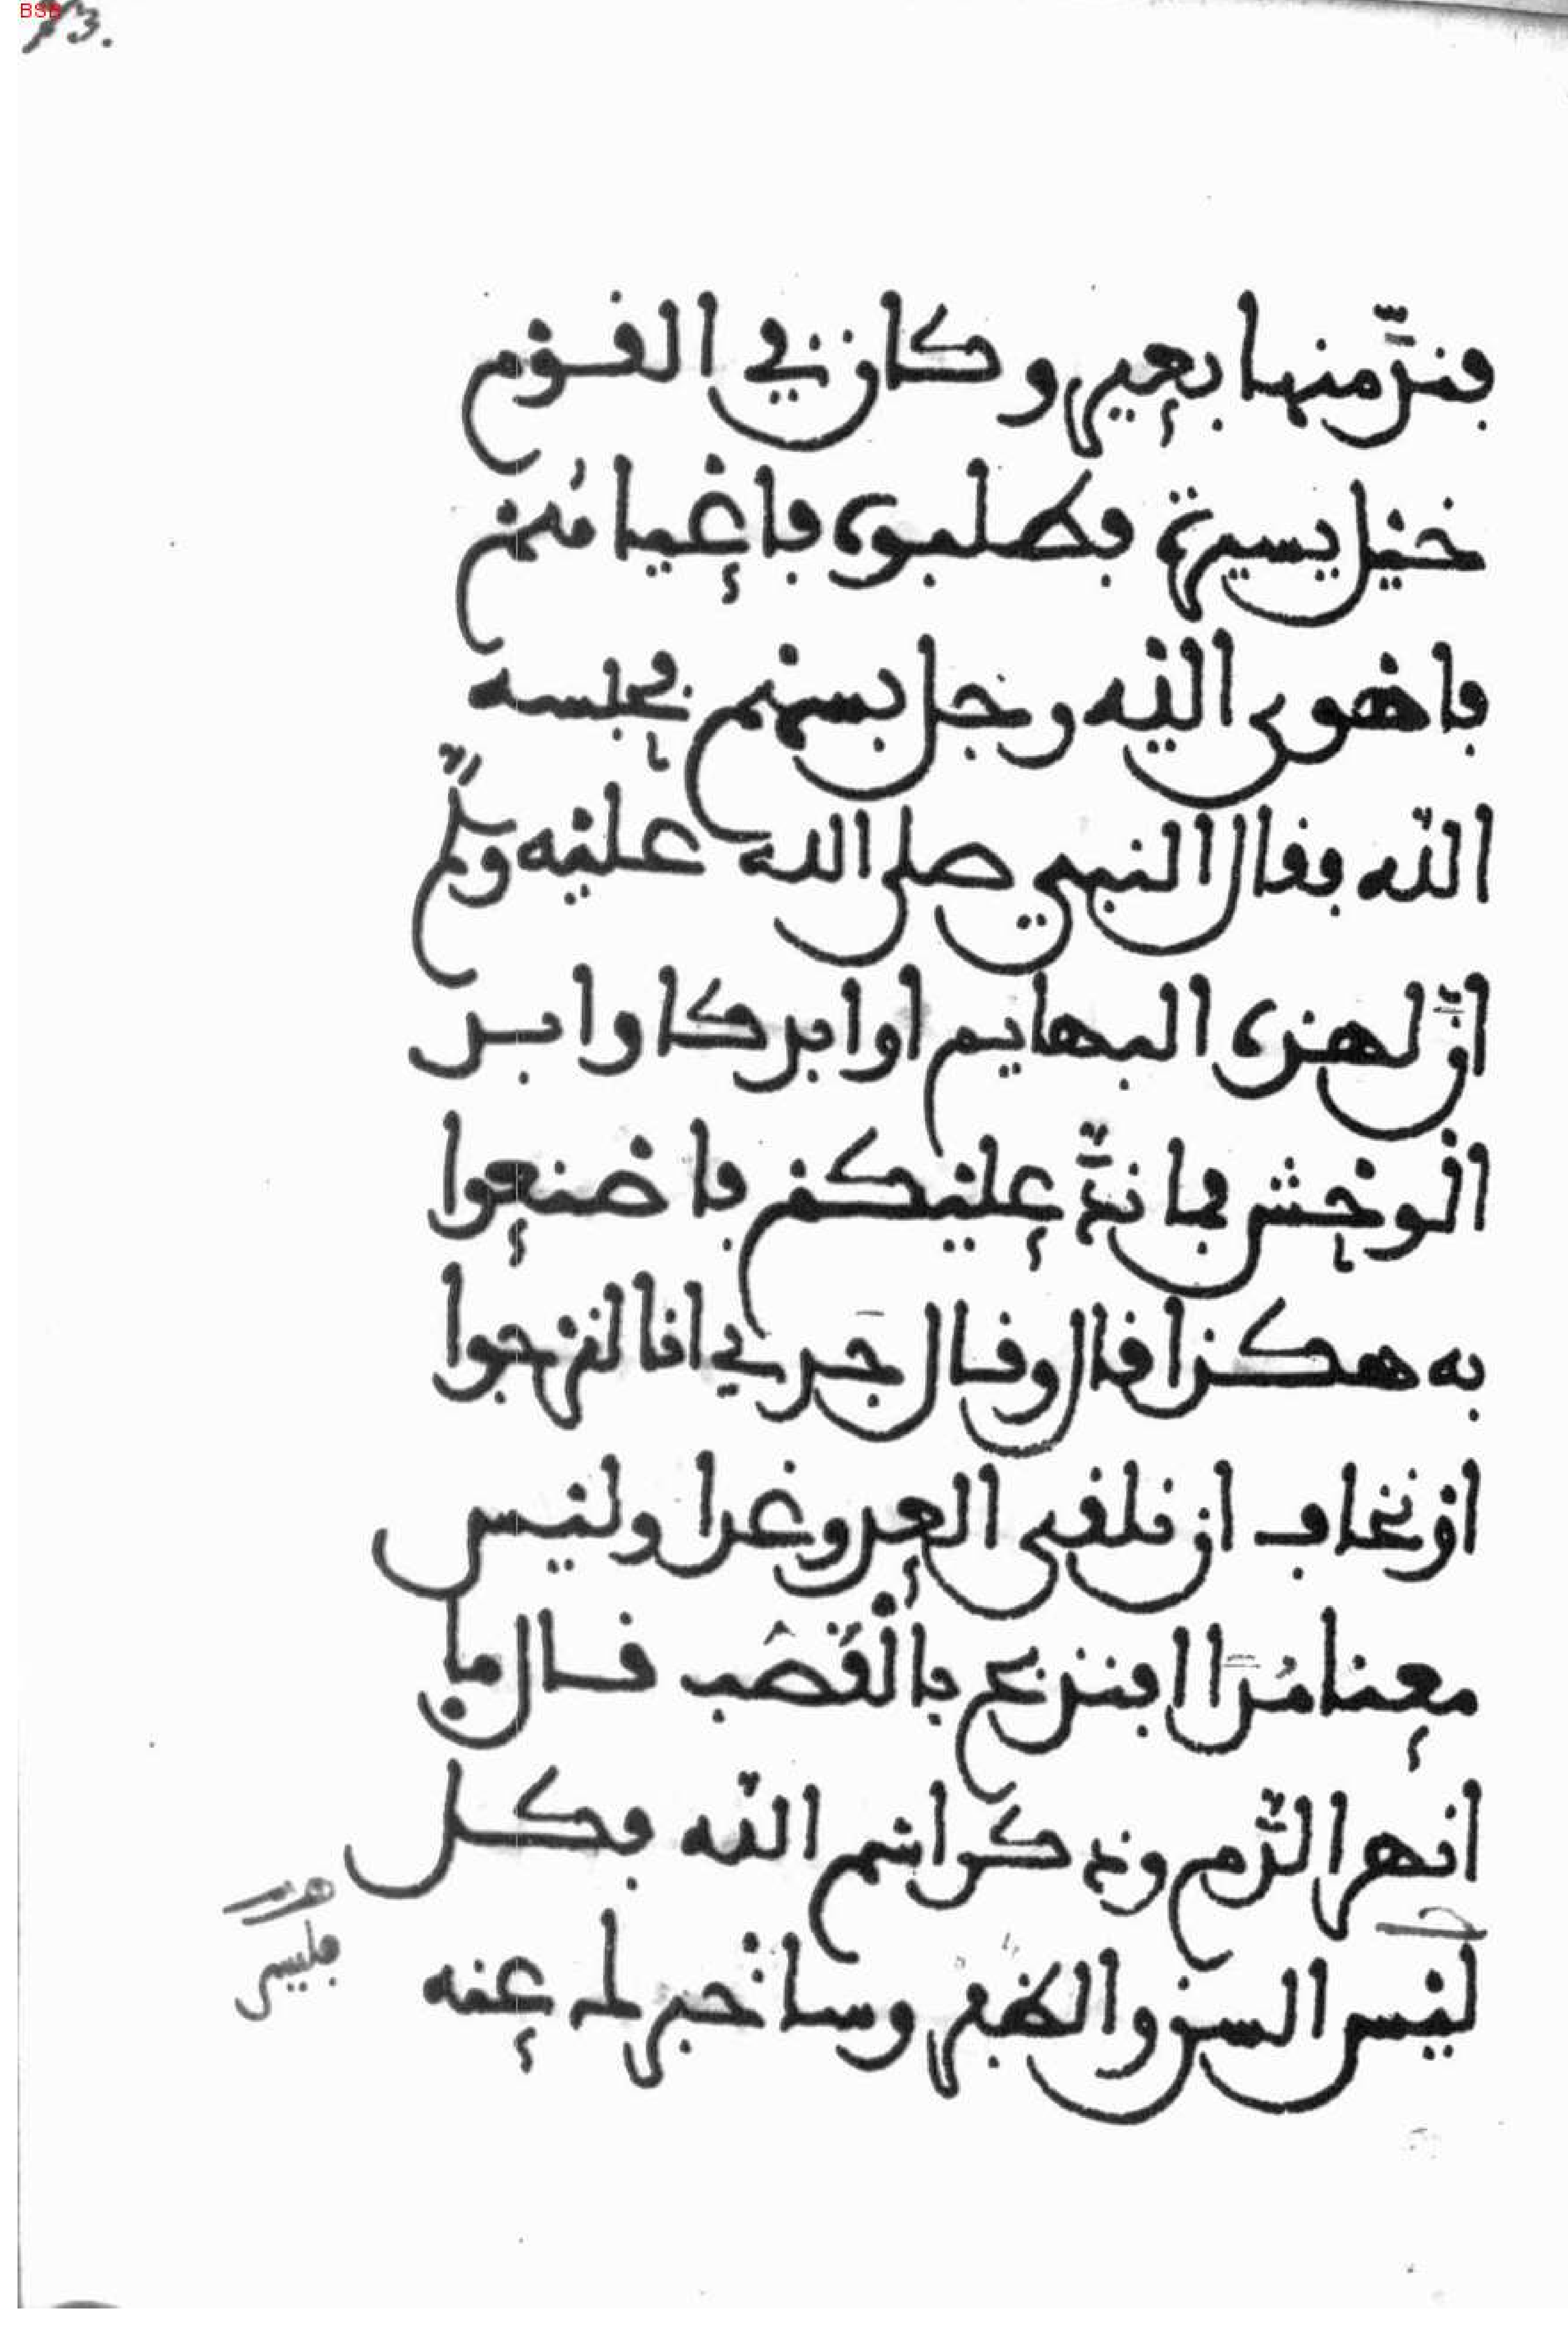 13.
BSB
فندّ منها بعير وكان في القوم
خيل يسيرة فطلبوه فاعياهم
فاهوى اليه رجل بسهم فحبسه
الله فقال النبي صلى الله عليه وسلم
انّ لهذه البهايم اوابد كاوابد
الوحش فما ندّ عليكم فاصنعوا
به هكذا قال وقال جدي انا لنرجوا
او نخاف ان نلقى العدو غدا وليس
معنا مُدًا افنذبح بالقَصَب قال ما
انهر الدّم وذكر اسم الله فكل
ليس السن والظفر وساخبركم عنه